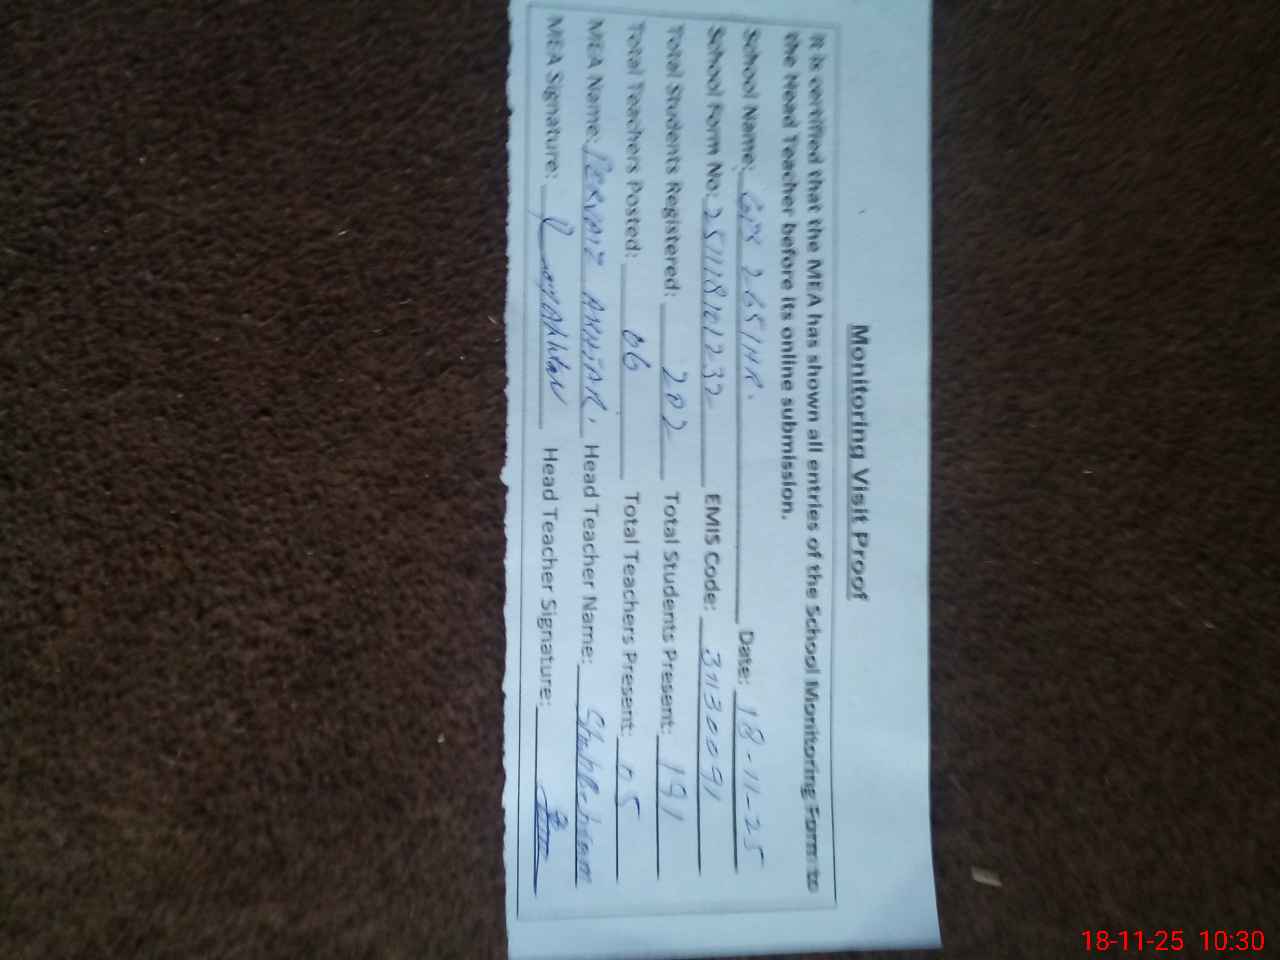 Monitoring Visit Proof
It is certified that the MEA has shown all entries of the School Monitoring Form to
the Head Teacher before its online submission.
School Name: GPS 265/HR. Date: 18-11-25
School Form No: 251118101232 EMIS Code: 31130091
Total Students Registered: 202 Total Students Present: 191
Total Teachers Posted: 06 Total Teachers Present: 05
MEA Name: PERVAIZ AKHTAR. Head Teacher Name:
MEA Signature: Head Teacher Signature:
18-11-25 10:30